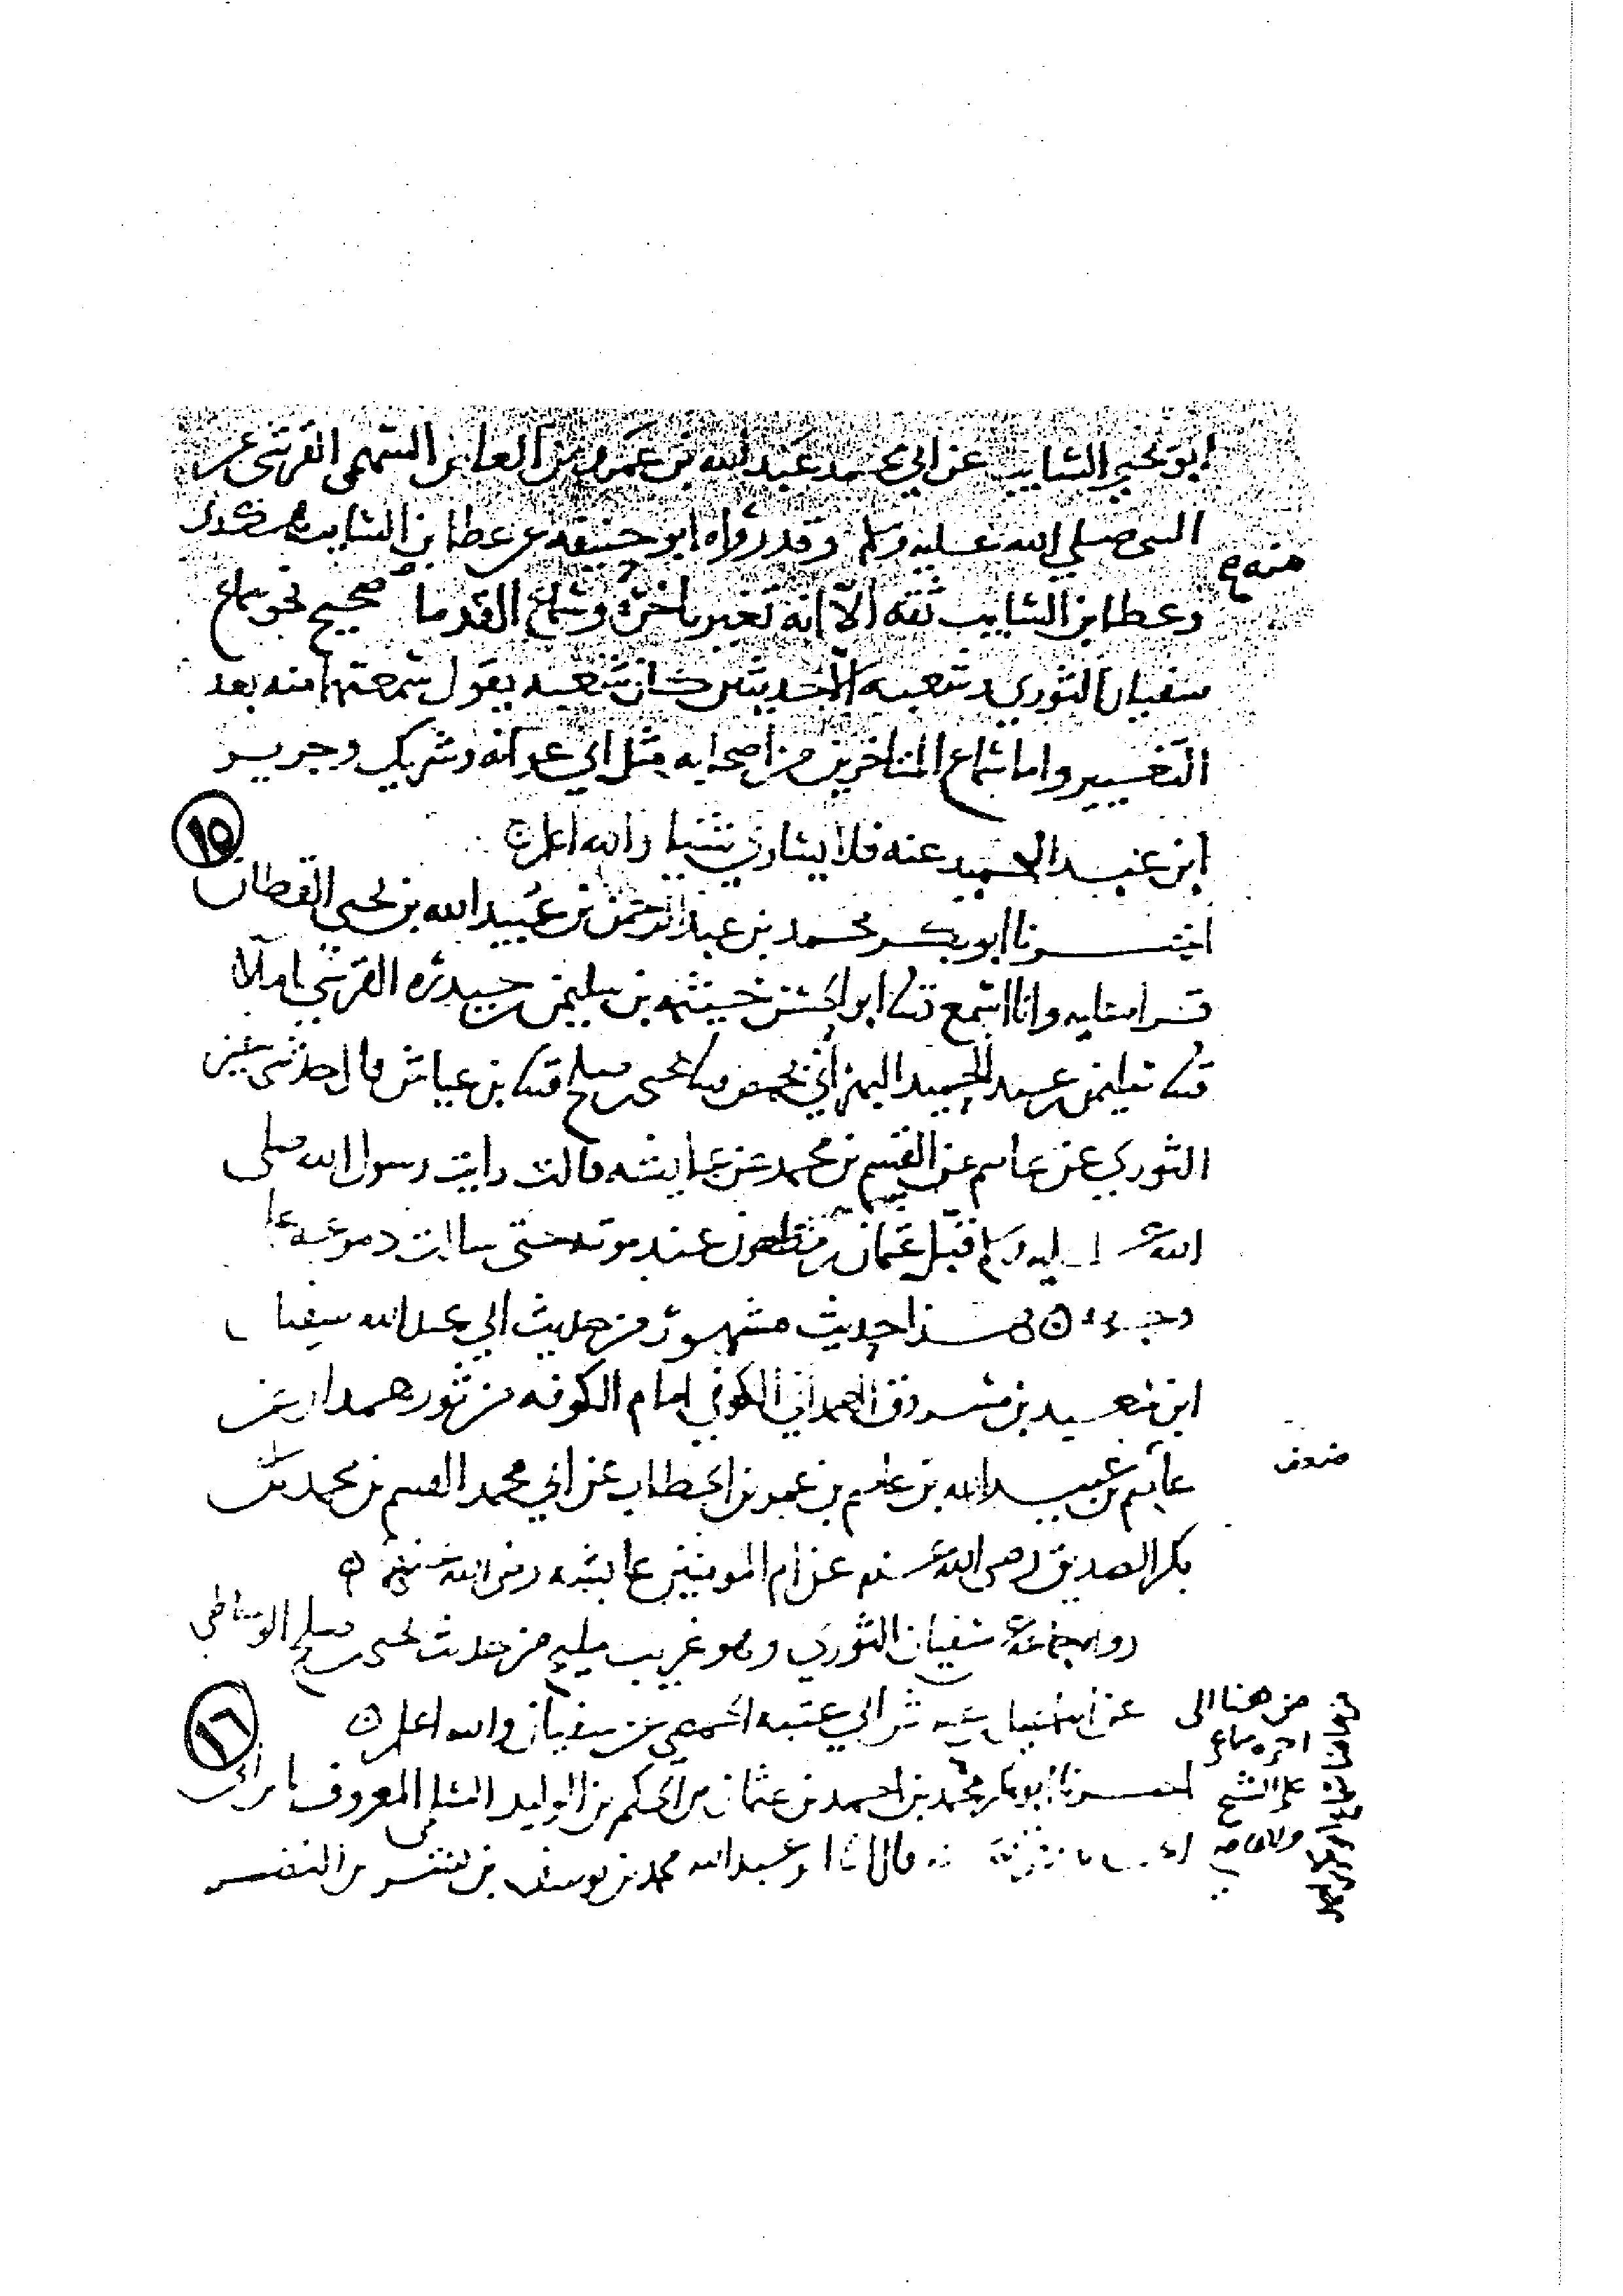 ابو يحيى السايب عن ابي محمد عبد الله بن عمرو بن العاص السهمي القرشي عن
النبي صلى الله عليه وسلم وقد رواه ابو حنيفة عن عطا بن السايب هكذى
وعطا بن السايب ثقة الا انه تغير باخرة وسماع القدما صحيح نحو سماع
سفيان الثوري وشعبة الا حديثين كان شعبة يقول سمعتهما منه بعد
التغيير واما سماع المتاخرين من اصحابه مثل ابي عوانة وشريك وجرير
ابن عبد الحميد عنه فلا يساوي شيا والله اعلم
١٥
اخبرنا ابو بكر محمد بن عبد الرحمن بن عبيد الله بن يحيى القطان
قراة عليه وانا اسمع ثنا ابو الحسن خيثمة بن سليمن بن حيدرة القرشي املا
ثنا سليمن بن عبد الحميد البهراني بحمص ثنا يحيى بن صلح ثنا بن عياش قال حدثني سفين
الثوري عن عاصم عن القسم بن محمد عن عايشة قالت رايت رسول الله صلى
الله عليه وسلم قبل عثمان بن مظعون عند موته حتى سالت دموعه على
وجهه هذا حديث مشهور من حديث ابي عبد الله سفيان
ابن سعيد بن مسروق الهمداني الكوفي امام الكوفة من ثور همدان عن
عاصم بن عبيد الله بن عاصم بن عمر بن الخطاب عن ابي محمد القسم بن محمد بن ابي
بكر الصديق رضي الله عنه عن ام المومنين عايشة رضي الله عنها
رواه جماعة عن سفيان الثوري وهو غريب مليح من حديث يحيى بن صلح الوحاظي
عن اسمعيل بن عياش ابي عتبة الحمصي عن سفيان والله اعلم
١٦
اخبرنا ابو بكر محمد بن احمد بن عثمان بن الحكم بن الوليد السلمي المعروف بابن ابي الحديد
قالا انا ابو عبد الله محمد بن يوسف بن بشر بن النضر
من هنا الى
اخره سماع
على الشيخ